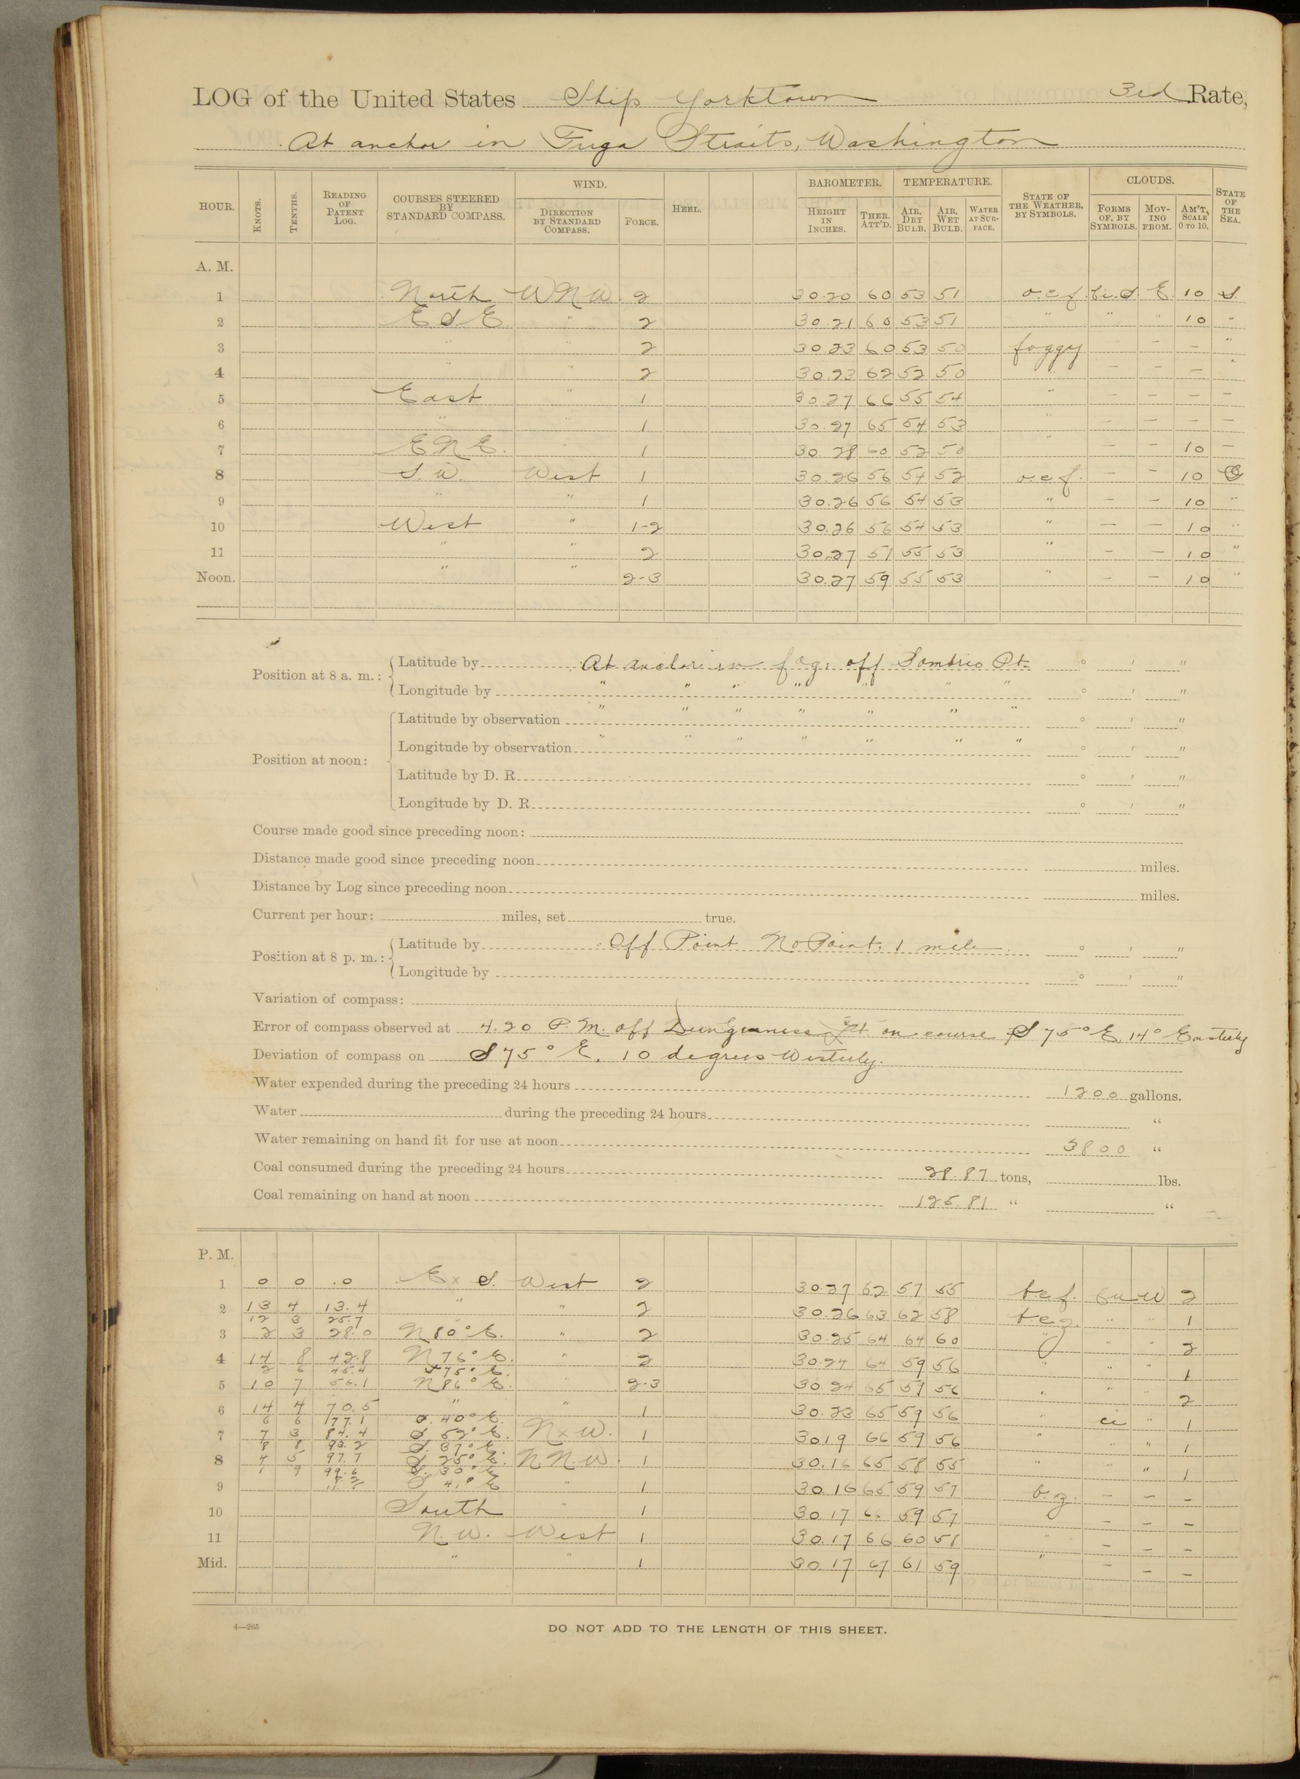 LOG of the United States Ship Yorktown 3rd Rate,
At anchor in Fuga Straits, Washington
HOUR. KNOTS. TENTHS. READING OF PATENT LOG. COURSES STEERED BY STANDARD COMPASS. WIND. DIRECTION BY STANDARD COMPASS. FORCE. HEEL. BAROMETER. HEIGHT IN INCHES. THER. ATT'D. TEMPERATURE. AIR, DRY BULB. AIR, WET BULB. WATER AT SURFACE. STATE OF THE WEATHER, BY SYMBOLS. CLOUDS. FORMS OF, BY SYMBOLS. MOVING FROM. AM'T, SCALE 0 TO 10. STATE OF THE SEA.
A. M.
1 North WNW 2 30.20 60 53 51 o.c.f. E 10 S
2 ESE " 2 30.21 60 53 51 " " " 10 "
3 " " 2 30.23 60 53 50 foggy — — — "
4 " " 2 30.23 62 52 50 " — — — "
5 East " 1 30.27 66 55 54 " — — — —
6 " " 1 30.27 65 54 53 " — — — —
7 ENE. " 1 30.28 60 52 50 " — — 10 —
8 S.W. West 1 30.26 56 54 52 o.c.f. — — 10
9 " " 1 30.26 56 54 53 " — — 10 "
10 West " 1-2 30.26 56 54 53 " — — 10 "
11 " " 2 30.27 57 55 53 " — — 10 "
Noon. " " 2-3 30.27 59 55 53 " — — 10 "
Position at 8 a. m.: Latitude by At anchor in fog, off Sombrio Pt. ° ′ ″
Longitude by " " " " " " " ° ′ ″
Position at noon: Latitude by observation " " " " " " " ° ′ ″
Longitude by observation " " " " " " " ° ′ ″
Latitude by D. R. ° ′ ″
Longitude by D. R. ° ′ ″
Course made good since preceding noon:
Distance made good since preceding noon miles.
Distance by Log since preceding noon miles.
Current per hour: miles, set true.
Position at 8 p. m.: Latitude by Off Point No Point, 1 mile ° ′ ″
Longitude by ° ′ ″
Variation of compass:
Error of compass observed at 4.20 P.M. off Dungeness Pt. on course S 75° E, 14° Easterly
Deviation of compass on S 75° E, 10 degrees Westerly.
Water expended during the preceding 24 hours 1200 gallons.
Water during the preceding 24 hours "
Water remaining on hand fit for use at noon 3800 "
Coal consumed during the preceding 24 hours 28.87 tons, lbs.
Coal remaining on hand at noon 125.81 " "
P. M.
1 0 0 .0 E x S. West 2 30.27 62 57 55 b.c.f. cu W 2
2 13 4 13.4 " " 2 30.26 63 62 58 b.c.z. " " 1
12 3 25.7
3 2 3 28.0 N 80° E. " 2 30.25 64 64 60 " " " 2
4 14 8 42.8 N 76° E. " 2 30.24 64 59 56 " " " 1
2 6 45.4 S 75° E.
5 10 7 56.1 N 86° E. " 2-3 30.24 65 57 56 " " " 2
6 14 4 70.5 " " 1 30.23 65 59 56 " ci " 1
6 6 77.1 S. 40° E.
7 7 3 84.4 S. 52° E. N x W. 1 30.19 66 59 56 " " " 1
8 8 93.2 S. 37° E.
8 4 5 97.7 S 25° E. NNW 1 30.16 65 58 55 " " " 1
1 9 99.6 S. 30° E
9 S 41° E " 1 30.16 65 59 57 b.z. — — —
10 South " 1 30.17 59 57 " — — —
11 N.W. West 1 30.17 66 60 " — — —
Mid. " " 1 30.17 67 61 59 " — — —
4—265
DO NOT ADD TO THE LENGTH OF THIS SHEET.